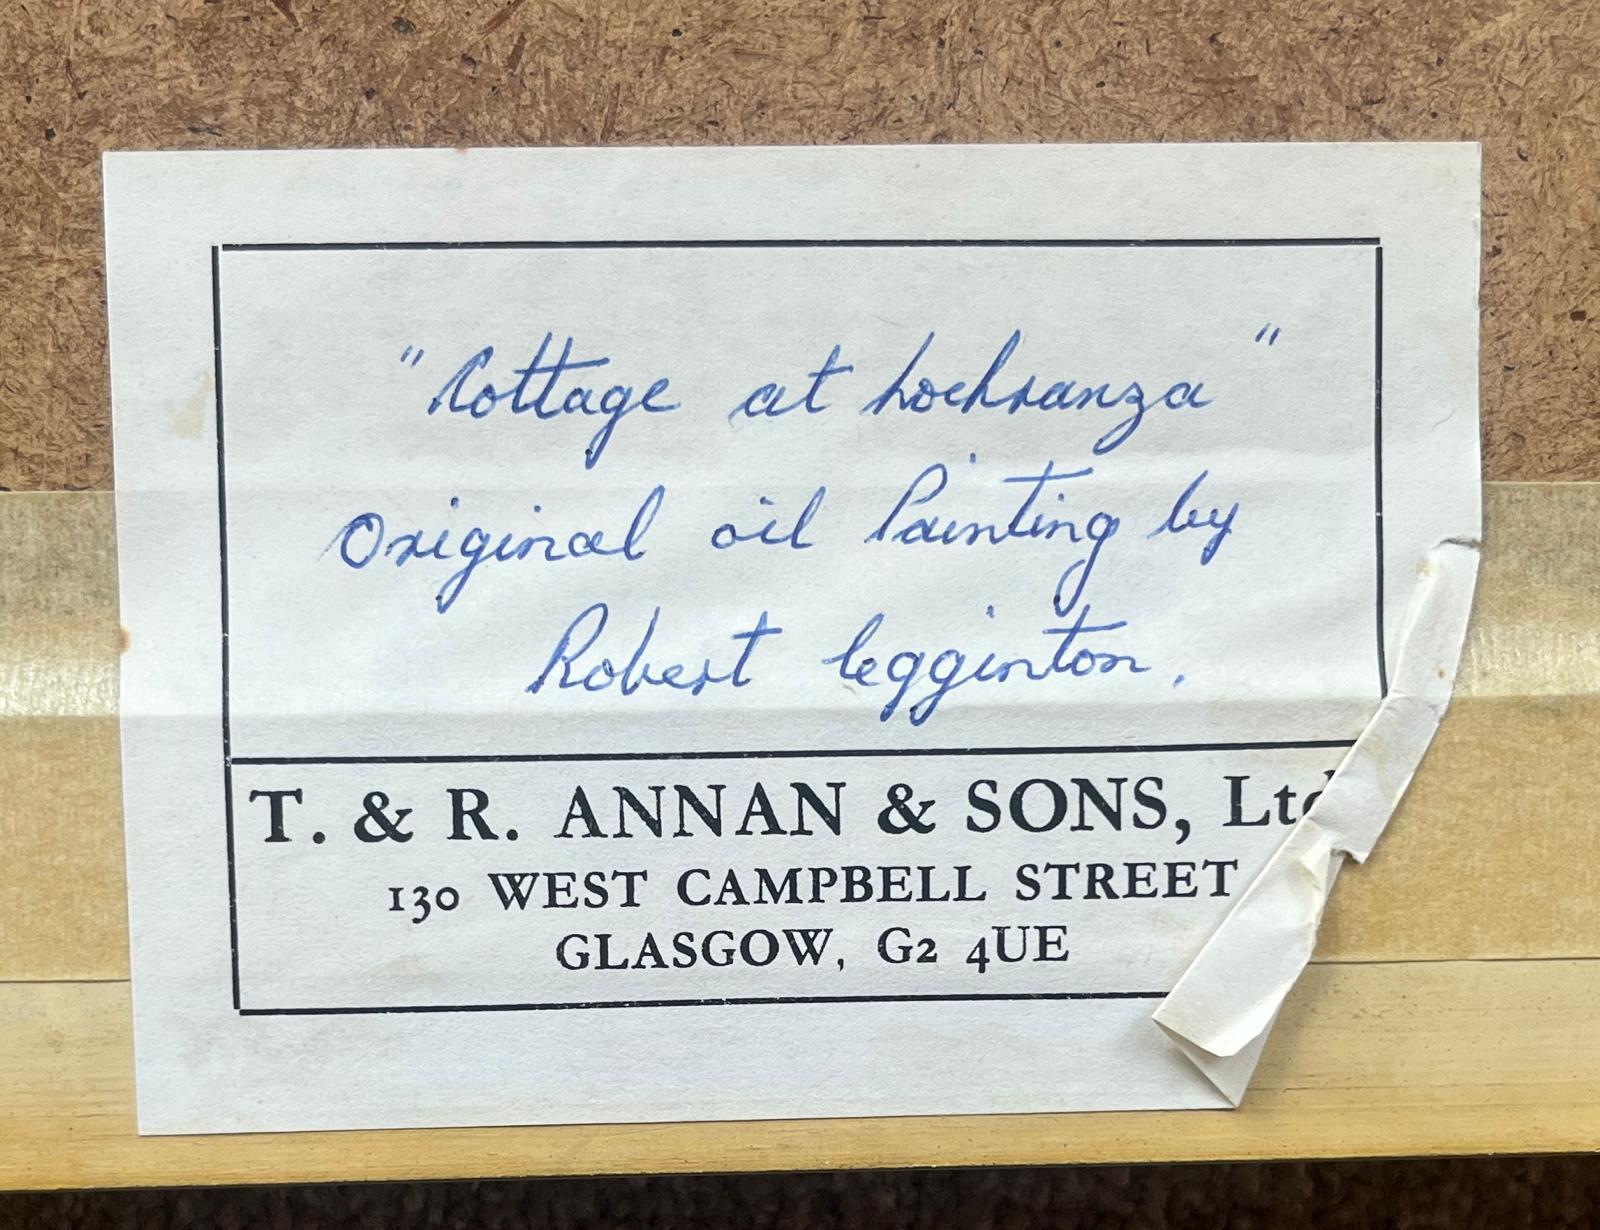 "Cottage at Lochranza"
Original oil Painting by
Robert Legginton.
T. & R. ANNAN & SONS, Ltd
130 WEST CAMPBELL STREET
GLASGOW, G2 4UE